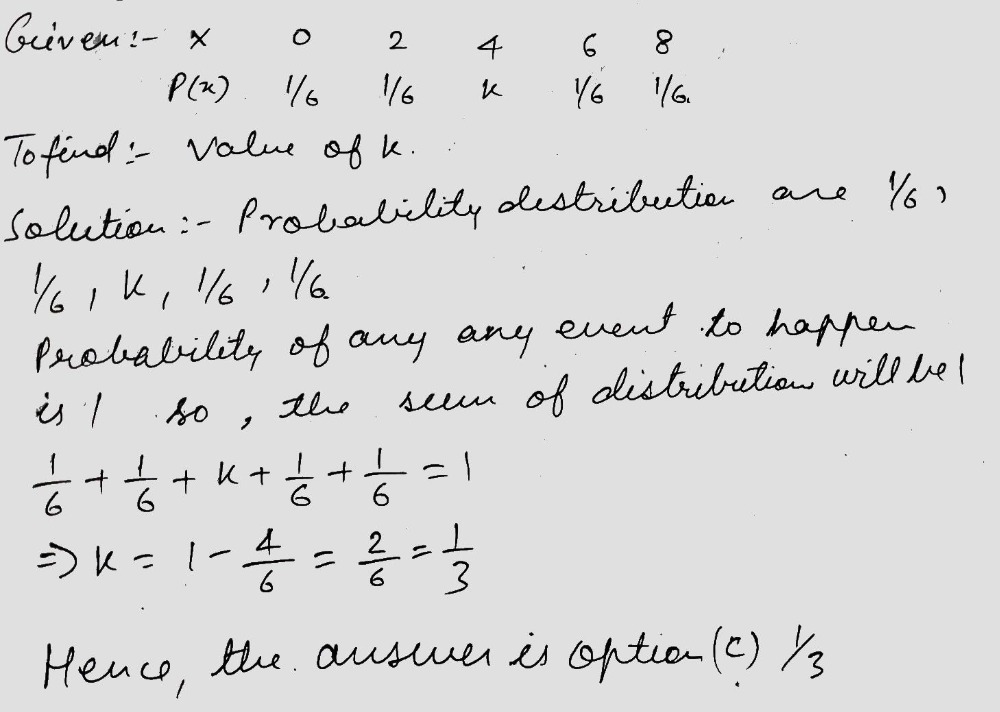 Given:- X 0 2 4 6 8
P(x) 1/6 1/6 k 1/6 1/6.
To find:- Value of k.
Solution:- Probability distribution are 1/6,
1/6, k, 1/6, 1/6.
Probability of any any event to happen
is 1 so, the sum of distribution will be 1
1/6 + 1/6 + k + 1/6 + 1/6 = 1
⇒ k = 1 - 4/6 = 2/6 = 1/3
Hence, the answer is option (c) 1/3